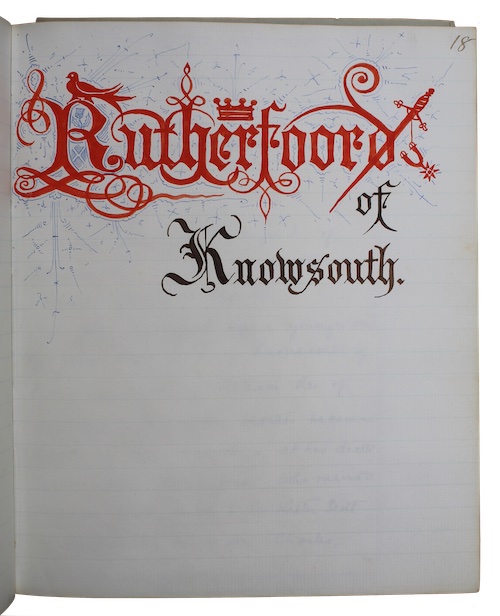 18
Rutherfoord
of
Knowsouth.